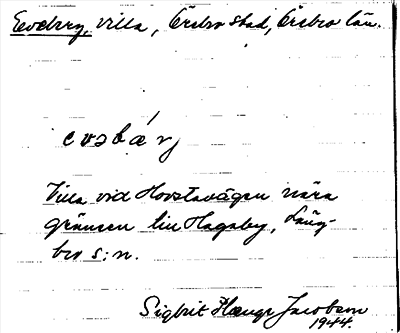 Evaberg, villa, Örebro stad, Örebro län.
evabærj
Villa vid Hovstavägen nära
gränsen till Hagaby, Läng-
bro s:n.
Sigbrit Jacobson
1944.